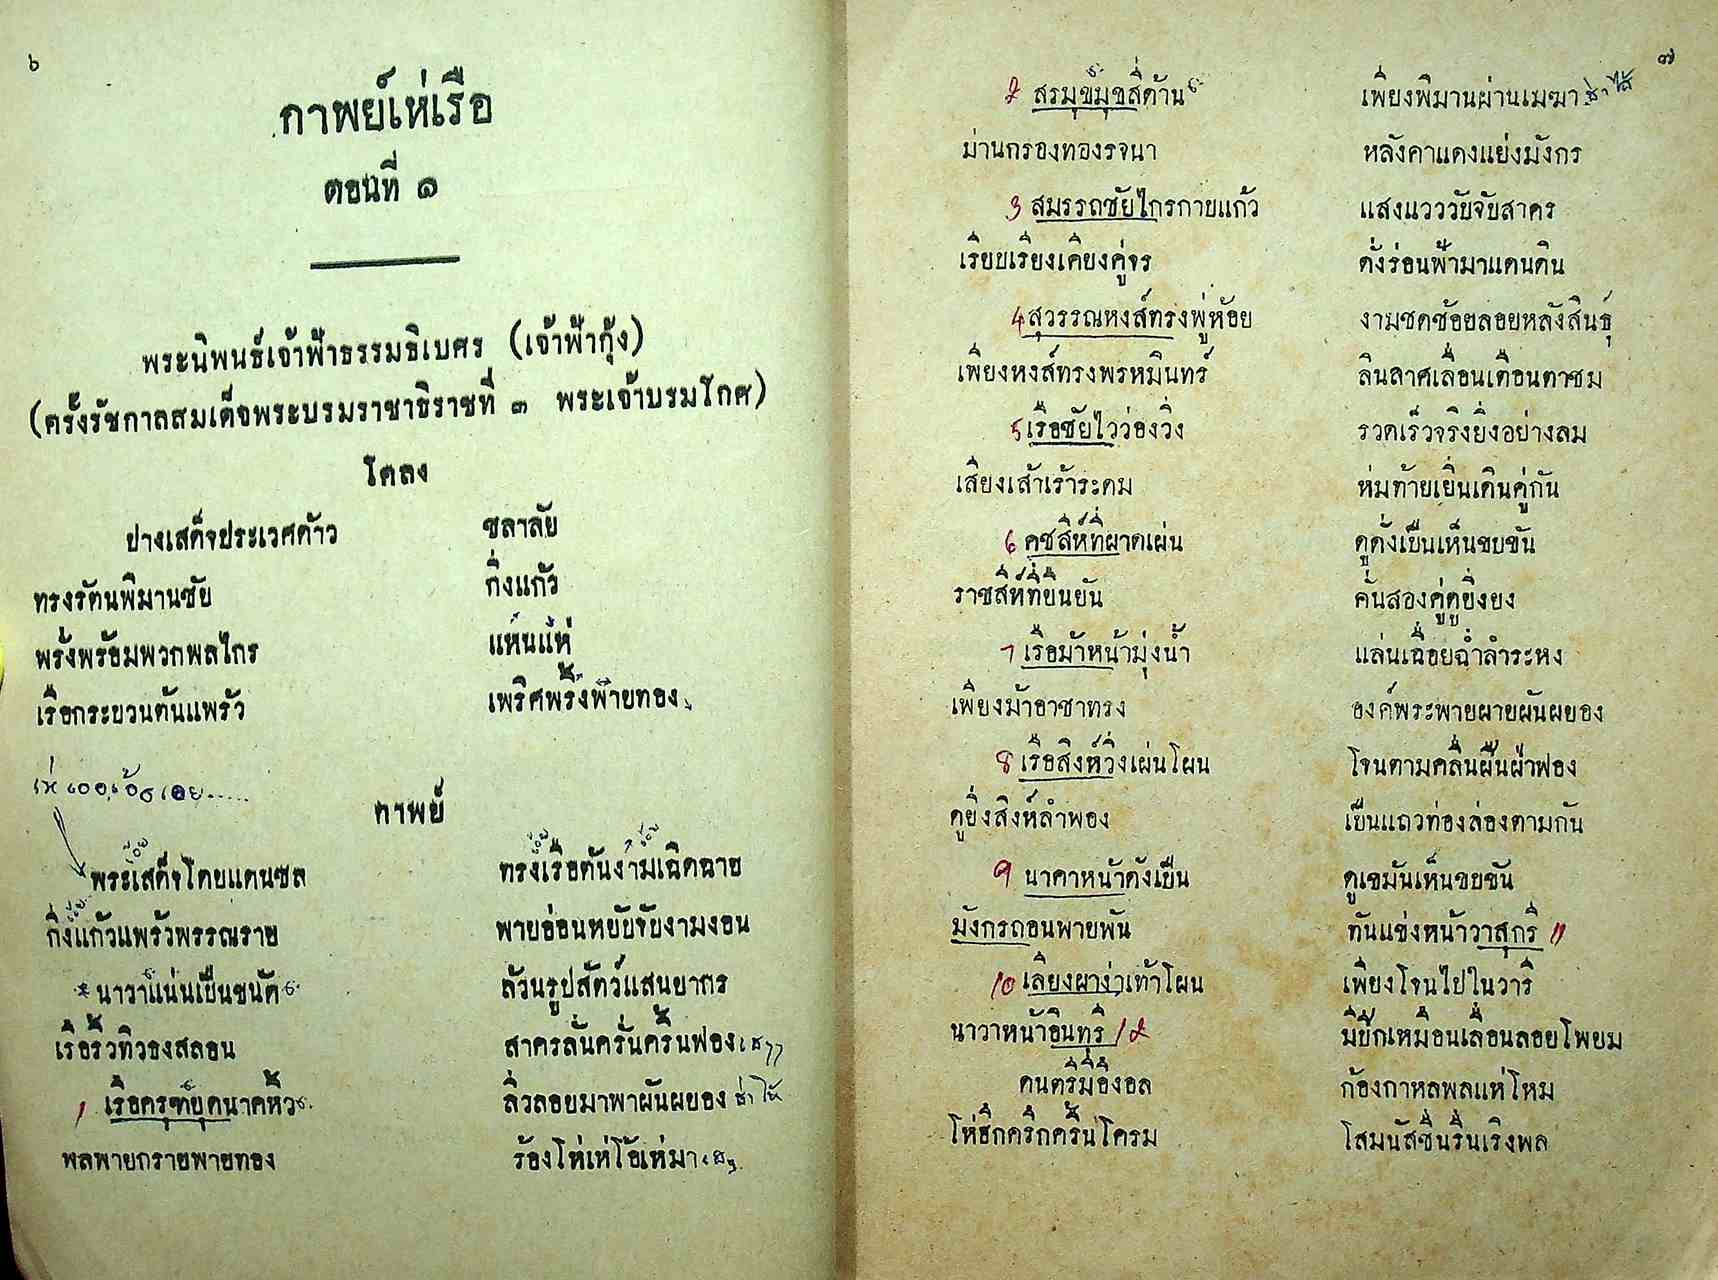 ๖
กาพย์เห่เรือ
ตอนที่ ๑
พระนิพนธ์เจ้าฟ้าธรรมธิเบศร (เจ้าฟ้ากุ้ง)
(ครั้งรัชกาลสมเด็จพระบรมราชาธิราชที่ ๓ พระเจ้าบรมโกศ)
โคลง
ปางเสด็จประเวศด้าว ชลาลัย
ทรงรัตนพิมานชัย กิ่งแก้ว
พรั่งพร้อมพวกพลไกร แห่นแห่
เรือกระบวนต้นแพร้ว เพริศพริ้งพายทอง
กาพย์
พระเสด็จโดยแดนชล ทรงเรือต้นงามเฉิดฉาย
กิ่งแก้วแพร้วพรรณราย พายอ่อนหยับจับงามงอน
นาวาแน่นเป็นขนัด ล้วนรูปสัตว์แสนยากร
เรือริ้วทิวธงสลอน สาครลั่นครั่นครื้นฟอง
1 เรือครุฑยุดนาคหิ้ว ลิ่วลอยมาพาผันผยอง
พลพายกรายพายทอง ร้องโห่เห่โอ้เห่มา
๗
2 สรมุขมุขสี่ด้าน เพียงพิมานผ่านเมฆา
ม่านกรองทองรจนา หลังคาแดงแย่งมังกร
3 สมรรถชัยไกรกาบแก้ว แสงแวววับจับสาคร
เรียบเรียงเคียงคู่จร ดั่งร่อนฟ้ามาแดนดิน
4 สุวรรณหงส์ทรงพู่ห้อย งามชดช้อยลอยหลังสินธุ์
เพียงหงส์ทรงพรหมินทร์ ลินลาศเลื่อนเตือนตาชม
5 เรือชัยไวว่องวิ่ง รวดเร็วจริงยิ่งอย่างลม
เสียงเส้าเร้าระดม ห่มท้ายเยิ่นเดินคู่กัน
6 คชสีห์ที่ผาดเผ่น ดูดั่งเป็นเห็นขบขัน
ราชสีห์ที่ยืนยัน คั่นสองคู่ดูยิ่งยง
7 เรือม้าหน้ามุ่งน้ำ แล่นเฉื่อยฉ่ำลำระหง
เพียงม้าอาชาทรง องค์พระพายผายผันผยอง
8 เรือสิงห์วิ่งเผ่นโผน โจนตามคลื่นฝืนฝ่าฟอง
ดูยิ่งสิงห์ลำพอง เป็นแถวท่องล่องตามกัน
9 นาคาหน้าดังเป็น ดูเขม้นเห็นขบขัน
มังกรถอนพายพัน ทันแข่งหน้าวาสุกรี 11
10 เลียงผาง่าเท้าโผน เพียงโจนไปในวารี
นาวาหน้าอินทรี 12 มีปีกเหมือนเลื่อนลอยโพยม
ดนตรีมี่อึงอล ก้องกาหลพลแห่โหม
โห่ฮึกครึกครื้นโครม โสมนัสชื่นรื่นเริงพล